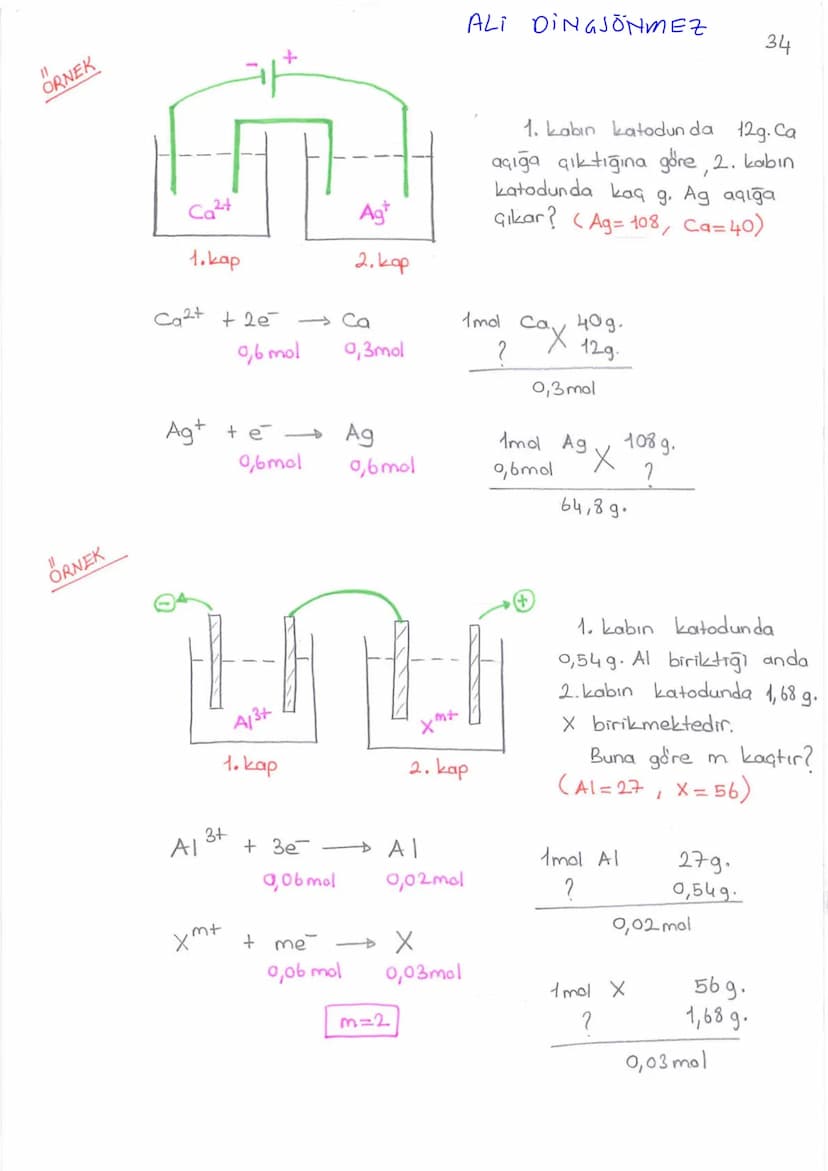 ALİ DİNÇSÖNMEZ
34
ÖRNEK
- +
1. kabın katodunda 12g. Ca
açığa çıktığına göre, 2. kabın
katodunda kaç g. Ag açığa
çıkar? (Ag=108, Ca=40)
Ca²⁺ Ag⁺
1.kap 2.kap
Ca²⁺ + 2e⁻ → Ca
0,6 mol 0,3mol
1mol Ca 40g.
? 12g.
0,3mol
Ag⁺ + e⁻ → Ag
0,6mol 0,6mol
1mol Ag 108g.
0,6mol ?
64,8g.
ÖRNEK
- +
1. kabın katodunda
0,54g. Al biriktiği anda
2.kabın katodunda 1,68g.
X birikmektedir.
Buna göre m kaçtır?
(Al=27, X=56)
Al³⁺ Xᵐ⁺
1.kap 2. kap
Al³⁺ + 3e⁻ → Al
0,06mol 0,02mol
1mol Al 27g.
? 0,54g.
0,02mol
Xᵐ⁺ + me⁻ → X
0,06mol 0,03mol
m=2
1mol X 56g.
? 1,68g.
0,03mol